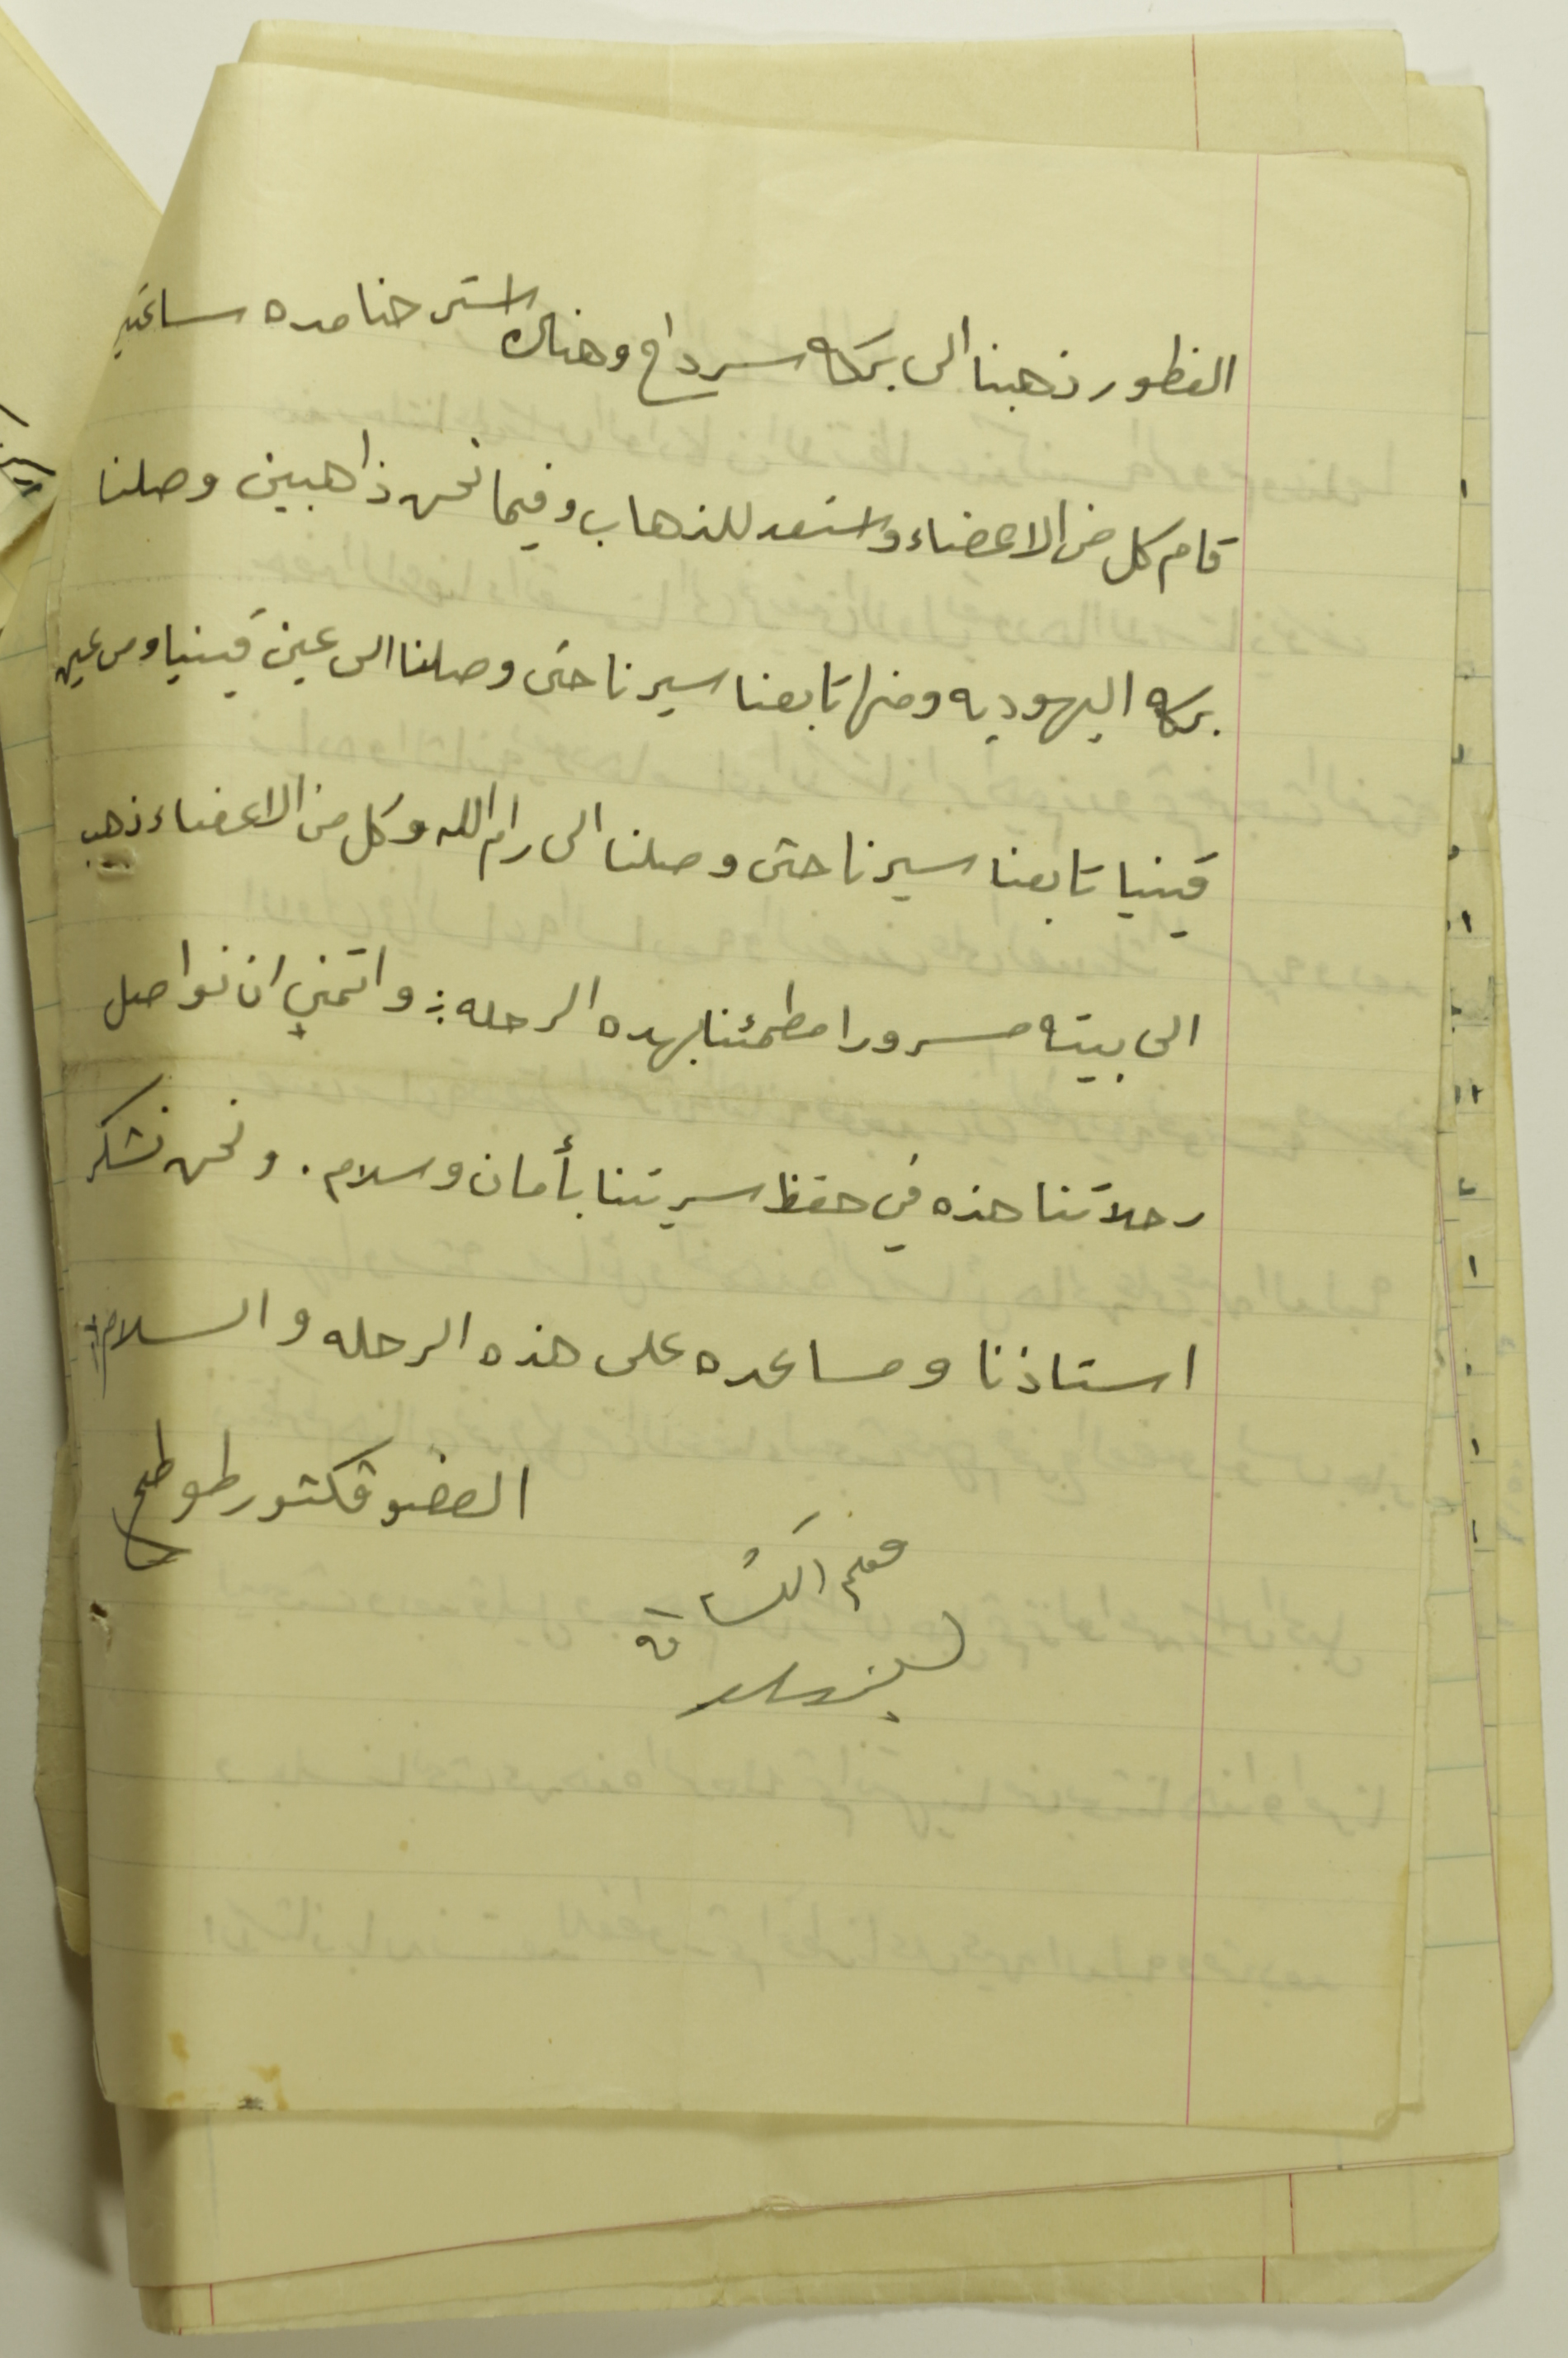 الفطور ذهبنا الى بركه سرداح وهناك استرحنا مده ساعتين
قام كل من الاعضاء واستعد للذهاب وفيما نحن ذاهبين وصلنا
بركه اليهوديه ومنها تابعنا سيرنا حتى وصلنا الى عين قينيا ومن عين
قينيا تابعنا سيرنا حتى وصلنا الى رام الله وكل من الاعضاء ذهب
الى بيته مسرورا مطمئنا بهده الرحله ؛ واتمنى ان نواصل
رحلاتنا هذه في حفظ سريتنا بأمان وسلام . ونحن نشكر
استاذنا ومساعده على هذه الرحله والسلام
العضو فكتور طوطح
معلم الكشافة